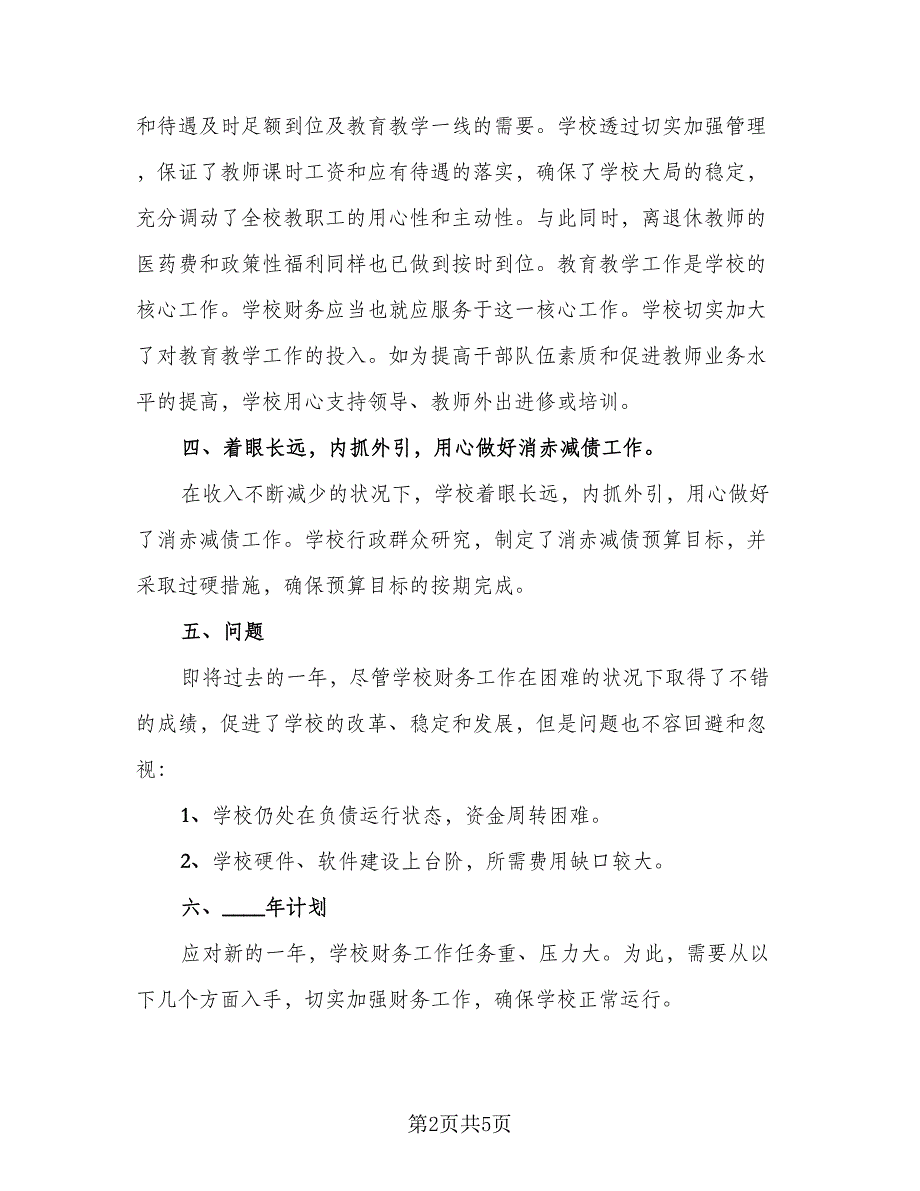 和待遇及时足额到位及教育教学一线的需要。学校透过切实加强管理
，保证了教师课时工资和应有待遇的落实，确保了学校大局的稳定，
充分调动了全校教职工的用心性和主动性。与此同时，离退休教师的
医药费和政策性福利同样也已做到按时到位。教育教学工作是学校的
核心工作。学校财务应当也就应服务于这一核心工作。学校切实加大
了对教育教学工作的投入。如为提高干部队伍素质和促进教师业务水
平的提高，学校用心支持领导、教师外出进修或培训。
四、着眼长远，内抓外引，用心做好消赤减债工作。
在收入不断减少的状况下，学校着眼长远，内抓外引，用心做好
了消赤减债工作。学校行政群众研究，制定了消赤减债预算目标，并
采取过硬措施，确保预算目标的按期完成。
五、问题
即将过去的一年，尽管学校财务工作在困难的状况下取得了不错
的成绩，促进了学校的改革、稳定和发展，但是问题也不容回避和忽
视：
1、学校仍处在负债运行状态，资金周转困难。
2、学校硬件、软件建设上台阶，所需费用缺口较大。
六、____年计划
应对新的一年，学校财务工作任务重、压力大。为此，需要从以
下几个方面入手，切实加强财务工作，确保学校正常运行。
第2页共5页